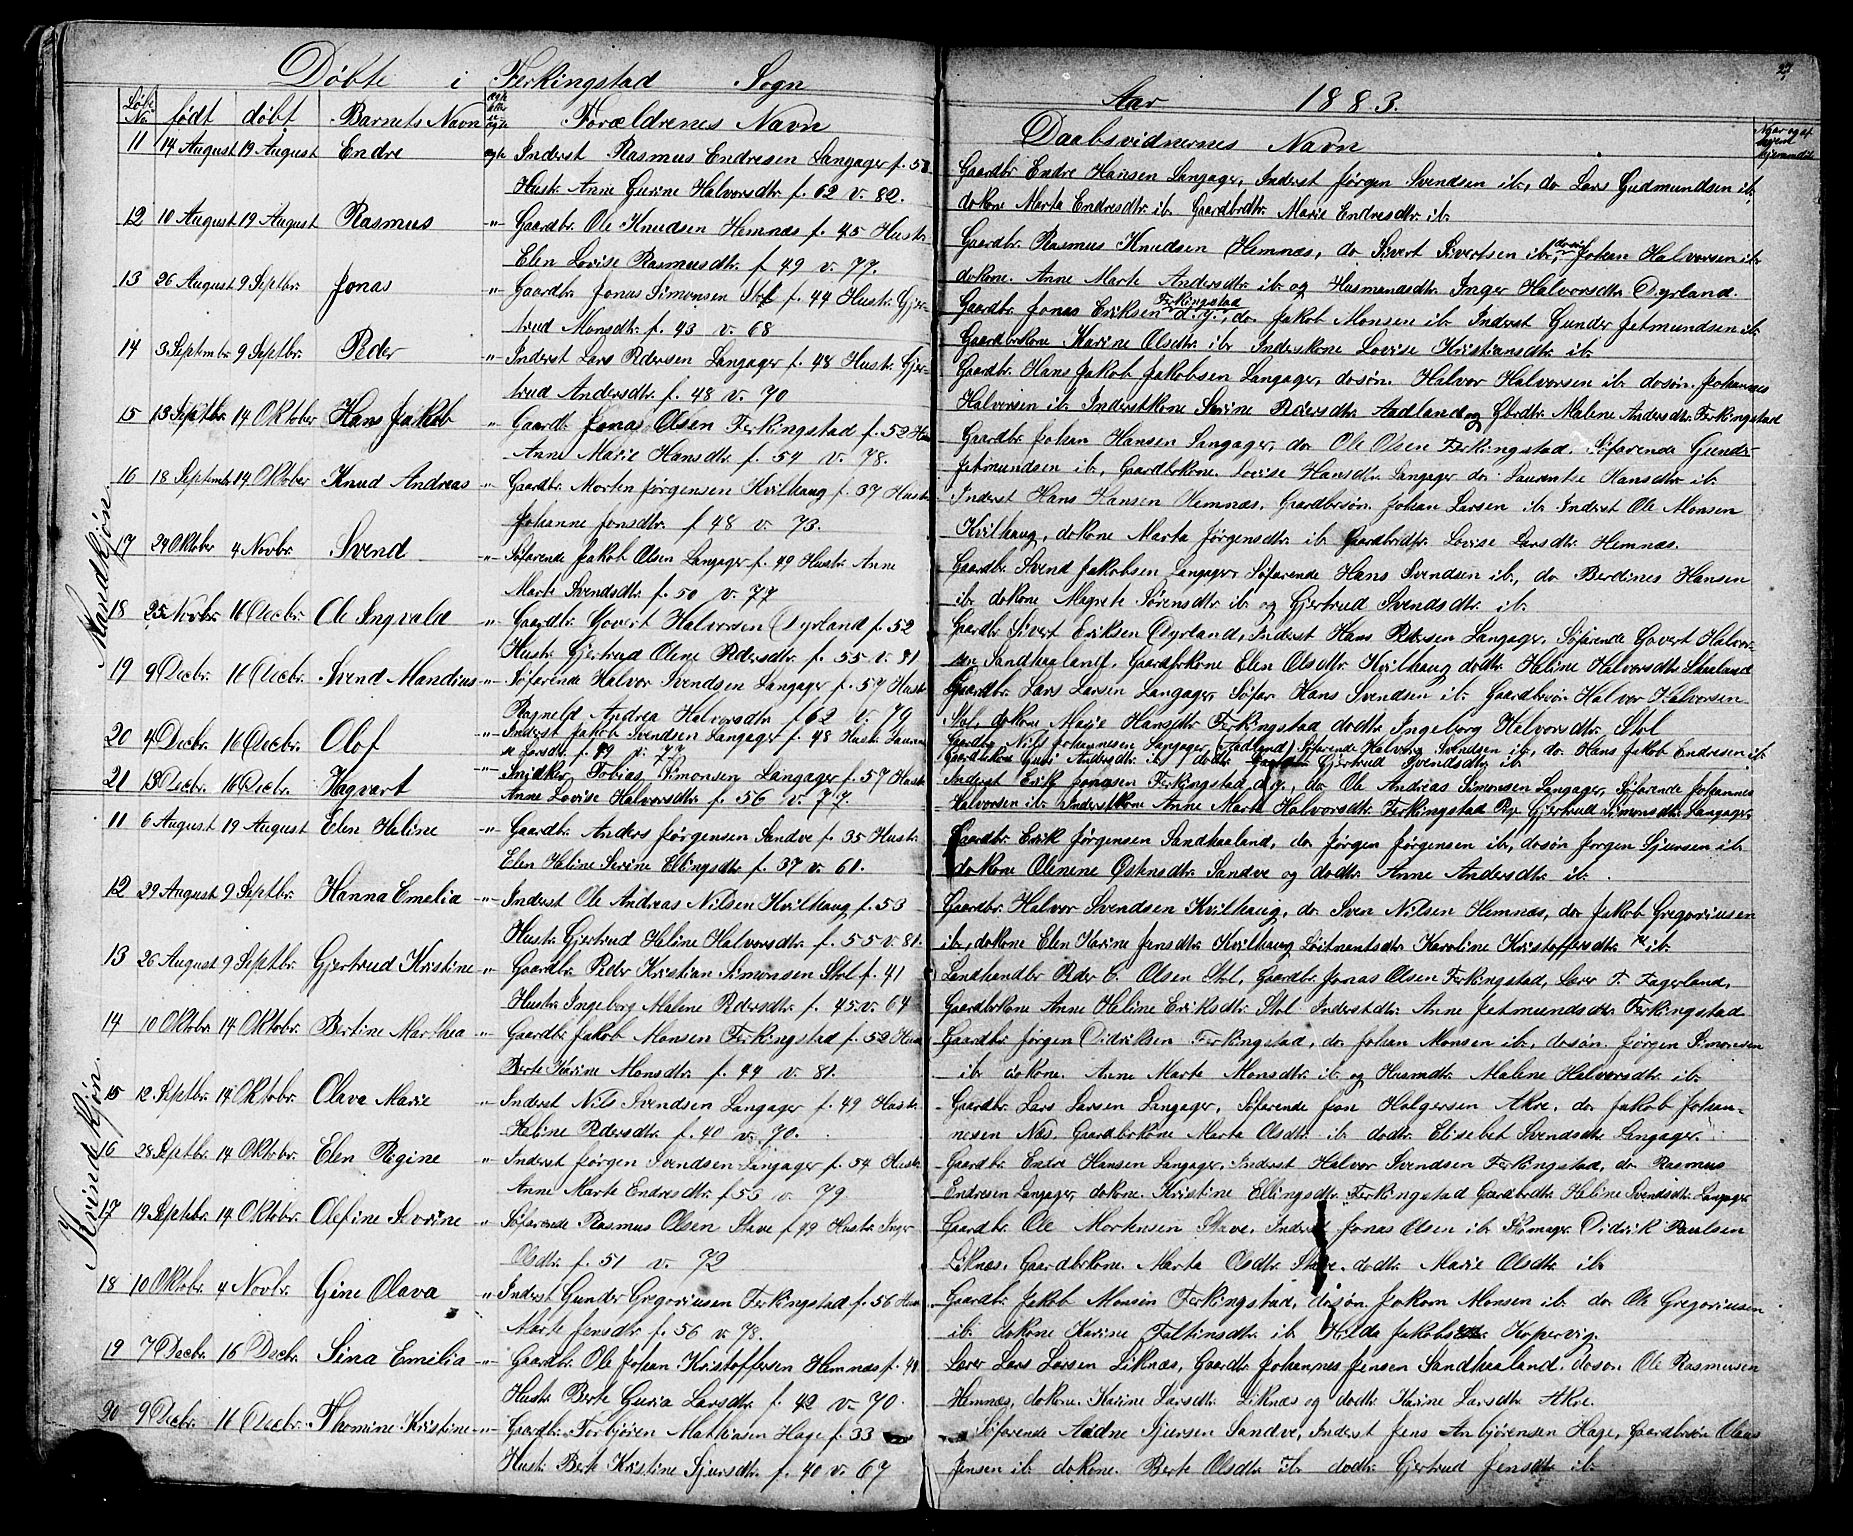 Døbte i Ferkingstad Sogn
Løbe No født døbt Barnets Navn Forældrenes Navn
Mandkjøn
11 14 August 19 August Endre ægte Inderst Rasmus Endresen Langager f. 58
Hustr. Anne Gurine Halvorsdtr. f. 62 v. 82.
12 10 August 19 August Rasmus " Gaardbr. Ole Knudsen Hemnæs f. 45 Hustr.
Elen Lovise Rasmusdtr. f. 49 v. 77.
13 26 August 9 Septbr. Jonas " Gaardbr. Jonas Simonsen Stol f. 44 Hustr. Gjer-
trud Monsdtr. f. 43 v. 68
14 3 Septembr 9 Septbr. Peder " Inderst Lars Pedersen Langager f. 48 Hustr. Gjer-
trud Andersdtr. f. 48 v. 70
15 13 Septbr. 14 Oktober Hans Jakob " Gaardb. Jonas Olsen Ferkingstad f. 52 Hustr
Anne Marie Hansdtr. f. 54 v. 78.
16 18 Septembr 14 Oktober Knud Andreas " Gaardbr. Morten Jørgensen Kvilhaug f. 37 Hustr.
Johanne Jonsdtr. f 48 v. 73.
17 24 Oktober 4 Novbr. Svend " Søfarende Jakob Olsen Langager f. 49 Hustr. Anne
Marte Svendsdtr. f. 50 v. 77
18 25 Novbr. 16 Decbr. Ole Ingvald " Gaardbr. Govert Halvorsen Dyrland f. 52
Hustr. Gjertrud Olene Pedersdtr. f. 55 v. 81
19 9 Decbr. 16 Decbr. Svend Mandius " Søfarende Halvor Svendsen Langager f. 57 Hustr
Ragneld Andrea Halvorsdtr f. 62 v. 79
20 4 Decbr. 16 Decbr. Olof " Inderst Jakob Svendsen Langager f. 48 Hustr.
Larsdtr. f. 49 v. 77
21 13 Decbr. 16 Decbr. Hagvart " Snidker Tobias Simonsen Langager f. 57 Hustr
Anne Lovise Halvorsdtr. f. 56 v. 77.
Kvindekjøn
11 6 August 19 August Elen Heline " Gaardbr. Anders Jørgensen Sandve f. 35 Hustr.
Elen Heline Serine Ellingsdtr. f. 37 v. 61.
12 29 August 9 Septbr. Hanna Emelia " Inderst Ole Andreas Nilsen Kvilhaug f. 53
Hustr. Gjertrud Heline Halvorsdtr. f. 55 v. 81.
13 26 August 9 Septbr. Gjertrud Kristine " Gaardbr. Peder Kristian Simonsen Stol f. 41
Hustr. Ingeborg Malene Pedersdtr. f. 45. v. 64
14 10 Oktobr. 14 Oktobr. Bertine Marthea " Gaardbr. Jakob Monsen Ferkingstad f. 52 Hustr
Berte Karine Monsdtr. f. 44 v. 81.
15 12 Septbr. 14 Oktobr. Olava Marie " Inderst Nils Svendsen Langager f. 49 Hustr.
Heline Pedersdtr. f. 40 v. 70.
16 28 Septbr. 14 Oktobr. Elen Regine " Inderst Jørgen Svendsen Langager f. 54 Hustr.
Anne Marte Endresdtr. f. 55 v. 79.
17 19 Septbr. 14 Oktobr. Olefine Severine " Søfarende Rasmus Olsen Stave f. 49 Hustr. Inger
Olsdtr. f. 51 v. 72
18 10 Oktobr. 4 Novbr. Gine Olava " Inderst Gunder Gregoriusen Ferkingstad f. 56 Hustr
Marte Jensdtr. f. 56 v. 78.
19 7 Decbr. 16 Decbr. Sina Emilia " Gaardbr. Ole Johan Kristoffersen Hemnæs f. 48
Hustr. Berte Guria Larsdtr. f. 42 v. 70.
20 9 Decbr. 16 Decbr. Thomine Kristine " Gaardbr. Torbjøren Mathiasen Hage f. 33
Hustr. Berte Kristine Sjursdtr. f. 40 v. 67
27
Aar 1883.
Daabsvidnernes Navn
Gaardbr. Endre Hansen Langager, Inderst Jørgen Svendsen ib., do Lars Gudmundsen ib,
dokone Marta Endresdtr. ib. Gaardbrdtr. Marie Endresdtr. ib.
Gaardbr. Rasmus Knudsen Hemnæs, do Sivert Sivertsen ib., dosøn Johan Halvorsen ib.
dokone. Anne Marte Andersdtr. ib. og Husmandsdtr. Inger Halvorsdtr. Dyrland.
Gaardbr. Jonas Eriksen Ferkingstad d.y., do. Jakob Monsen ib. Inderst Gunder Jetmundsen ib.
Gaardbrkone Karine Olsdtr. ib. Inderskone Lovise Kristiansdtr. ib.
Gaardbr. Hans Jakob Jakobsen Langager, dosøn. Halvor Halvorsen ib. dosøn. Johannes
Halvorsen ib. Inderstkone Serine Pedersdtr. Aadland og Gbrdtr. Malene Andersdtr. Ferkingstad
Gaardbr. Johan Hansen Langager, do Ole Olsen Ferkingstad. Søfarende Gunder
Jetmundsen ib, Gaardbrkone. Lovise Hansdtr. Langager do Laurentse Hansdtr. ib.
Inderst Hans Hansen Hemnæs, Gaardbrsøn. Johan Larsen ib. Inderst Ole Monsen
Kvilhaug, dokone Marta Jørgensdtr. ib. Gaardbrdtr. Lovise Larsdtr. Hemnæs.
Gaardbr. Svend Jakobsen Langager, Søfarende Hans Svendsen ib., do Berdines Hansen
ib. dokone Magrete Sørensdtr. ib. og Gjertrud Svendsdtr. ib.
Gaardbr. Sivert Eriksen Dyrland, Inderst Hans Pedersen Langager, Søfarende Govert Halvor-
sen Sandhaaland, Gaardbrkone Elen Olsdtr. Kvilhaug dodtr. Heline Halvorsdtr.
Gaardbr. Lars Larsen Langager, Søfar. Hans Svendsen ib. Gaardbrsøn Halvor Halvorsen
Stol dokone Marie Hansdtr. Ferkingstad dodtr. Ingeborg Helvorsdtr. Stol
Gaardbr. Nils Johannesen Langager (Aadland) Søfarende Halvor Svendsen ib., do. Hans Jakob Endresen ib.
Gaardbrkone Guri Andersdtr. ib. dodtr. Gjertrud Svendsdtr. ib.
Inderst Erik Jonasen Ferkingstad d.y., do. Ole Andreas Simonsen Langager, Søfarende Johannes
Halvorsen ib. Inderstkone Anne Marta Halvorsdtr. Ferkingstad Pige Gjertrud Simonsdtr. Langager,
Gaardbr. Erik Jørgensen Sandhaaland, do Jørgen Jørgensen ib, dosøn Jørgen Sjursen ib
dokone Olenene Østensdtr. Sandve og dodtr. Anne Andersdtr. ib.
Gaardbr. Halvor Svendsen Kvilhaug, do Sven Nilsen Hemnæs, do Jakob Gregoriusen
ib, dokone Elen Karine Jensdtr. Kvilhaug Løitnentsdtr. Karoline Kristoffersdtr. ib.
Landhandler Peder C. Olsen Stol, Gaardbr. Jonas Olsen Ferkingstad, Lærer T. Fagerland,
Gaardbrkone Anne Heline Eriksdtr. Stol Inderstdtr. Anne Jetmundsdtr. Ferkingstad
Gaardbr. Jørgen Didriksen Ferkingstad, do Johan Monsen ib., dosøn. Jørgen Simonsen
ib. dokone. Anne Marte Monsdtr. ib. og Husmdtr. Malene Halvorsdtr. ib.
Gaardbr. Lars Larsen Langager, Søfarende Jon Holgersen Akre, do Jakob Johan-
nesen Næs, Gaardbrkone Marta Olsdtr. ib dodtr. Elisebet Svendsdtr. Langager.
Gaardbr. Endre Hansen Langager, Inderst Halvor Svendsen Ferkingstad, do Rasmus
Endresen Langager, dokone. Kristine Ellingsdtr. Ferkingstad Gaardbrdtr. Heline Svendsdtr. Langager
Gaardbr. Ole Mortensen Stave, Inderst Jonas Olsen ib. Skomager. Didrik Paulsen
Liknæs, Gaardbrkone. Marta Olsdtr. Stave, dodtr. Marie Olsdtr. ib.
Gaardbr. Jakob Monsen Ferkingstad, dosøn. Jokom Monsen ib. do Ole Gregoriusen
ib. dokone Karine Faltinsdtr. ib. Hilda Jakobsdtr. Kopervig.
Lærer Lars Larsen Liknæs, Gaardbr. Johannes Jensen Sandhaaland. dosøn Ole Rasmusen
Hemnæs, dokone. Karine Larsdtr. Liknæs og dodtr. Karine Larsdtr. Akre.
Søfarende Aadne Sjursen Sandve, Inderst Jens Anbjørensen Hage, Gaardbrsøn Olaus
Jensen ib. dokone. Berte Olsdtr. ib. dodtr. Gjertrud Jensdtr. ib.